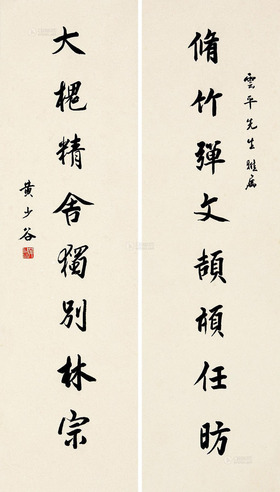 雲平先生雅屬
脩竹彈文頡頏任昉
大椑精舍獨別林宗
黄少谷